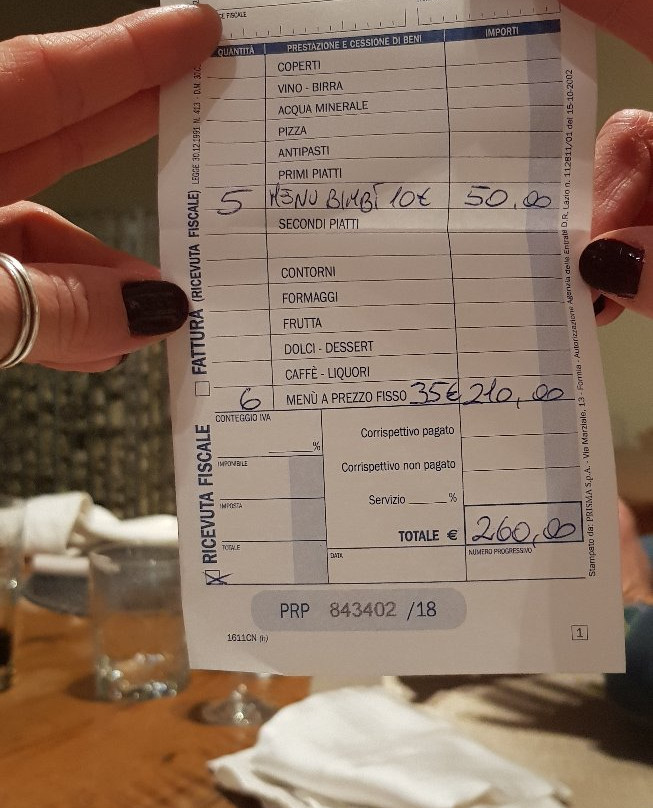 E FISCALE
QUANTITÀ PRESTAZIONE E CESSIONE DI BENI IMPORTI
COPERTI
VINO - BIRRA
ACQUA MINERALE
PIZZA
ANTIPASTI
PRIMI PIATTI
5 MENU BIMBI 10€ 50,00
SECONDI PIATTI
CONTORNI
FORMAGGI
FRUTTA
DOLCI - DESSERT
CAFFÈ - LIQUORI
6 MENÙ A PREZZO FISSO 35€ 210,00
CONTEGGIO IVA
%
IMPONIBILE
IMPOSTA
TOTALE
Corrispettivo pagato
Corrispettivo non pagato
Servizio ______ %
TOTALE € 260,00
DATA
NUMERO PROGRESSIVO
X RICEVUTA FISCALE
FATTURA (RICEVUTA FISCALE) LEGGE 30.12.1991 N. 413 - D.M. 30
PRP 843402 /18
1611CN (h)
1
Stampato da: PRISMA S.p.A. - Via Marziale, 13 - Formia - Autorizzazione Agenzia delle Entrate D.R. Lazio n. 112811/01 del 15-10-2002